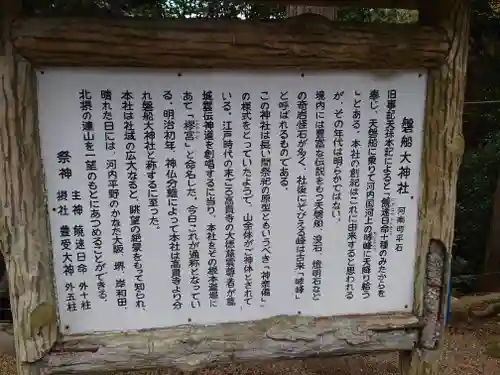 磐船大神社 河南町平石
旧事記天孫本記によると「饒速日命十種のみたからを
奉じ、天磐船に乗りて河内国河上の哮峰に天降り給う
」とある。本社の創記はこれに由来すると思われる
が、その年代は明らかではない。
境内には豊富な伝説をもつ天磐船、浪石、燈明石など
の奇岩怪石が多く、社後にそびえる峰は古来「哮峰」
と呼ばれるものである。
この神社は長い間祭祀の原型ともいうべき「神奈備」
の様式をとっていたようで、山全体がご神体とされて
いる。江戸時代の末ごろ高貴寺の大徳慈雲尊者が葛
城雲伝神道を創唱するに当り、本社をその根本道場に
あて「繆宮」と命名した。今日これが通称となってい
る。明治初年、神仏分離によって本社は高貴寺より分
れ磐船大神社と称するに至った。
本社は社域の広大なると、眺望の絶景をもって知られ、
晴れた日には、河内平野のかなた大阪 堺 岸和田
北摂の連山を一望のもとにあつめることができる。
祭神 主神 饒速日命 外十柱
摂社 豊受大神 外五柱